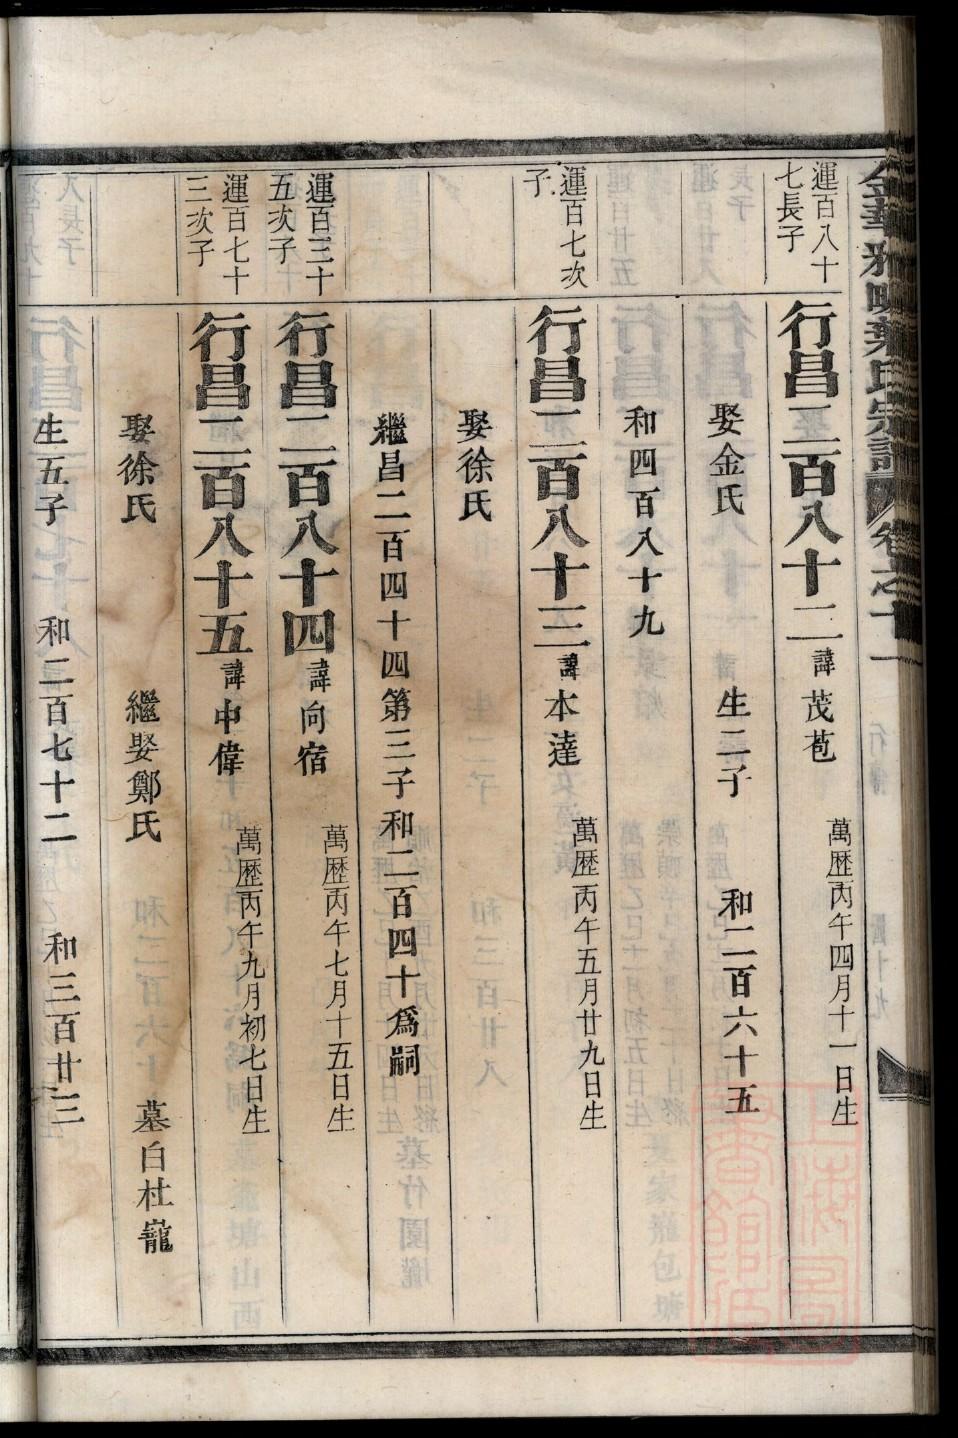 金華雅畈葉氏宗譜 卷之十一
運百八十七長子
行昌二百八十二 諱茂苞 萬歷丙午四月十一日生
娶金氏 生二子 和二百六十五
和四百八十九
運百七次子
行昌二百八十三 諱本達 萬歷丙午五月廿九日生
娶徐氏
繼昌二百四十四第三子和二百四十爲嗣
運百三十五次子
行昌二百八十四 諱向宿 萬歷丙午七月十五日生
運百七十三次子
行昌二百八十五 諱中偉 萬歷丙午九月初七日生
娶徐氏 繼娶鄭氏 墓白杜巃
生五子 和二百七十二 和三百廿三